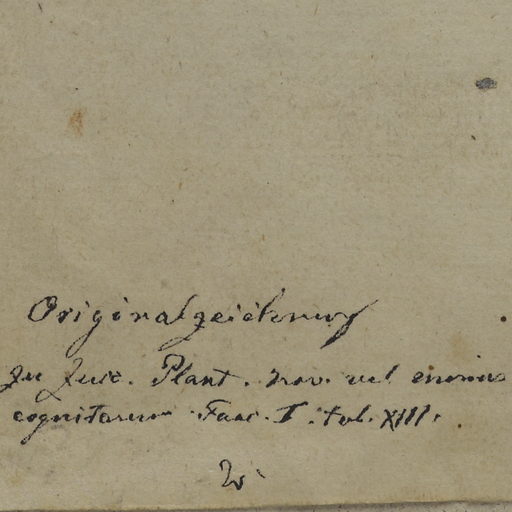 Originalzeichnung
zu Zucc. Plant. nov. vel minus
cognitarum Fasc. I. tab. XIII.